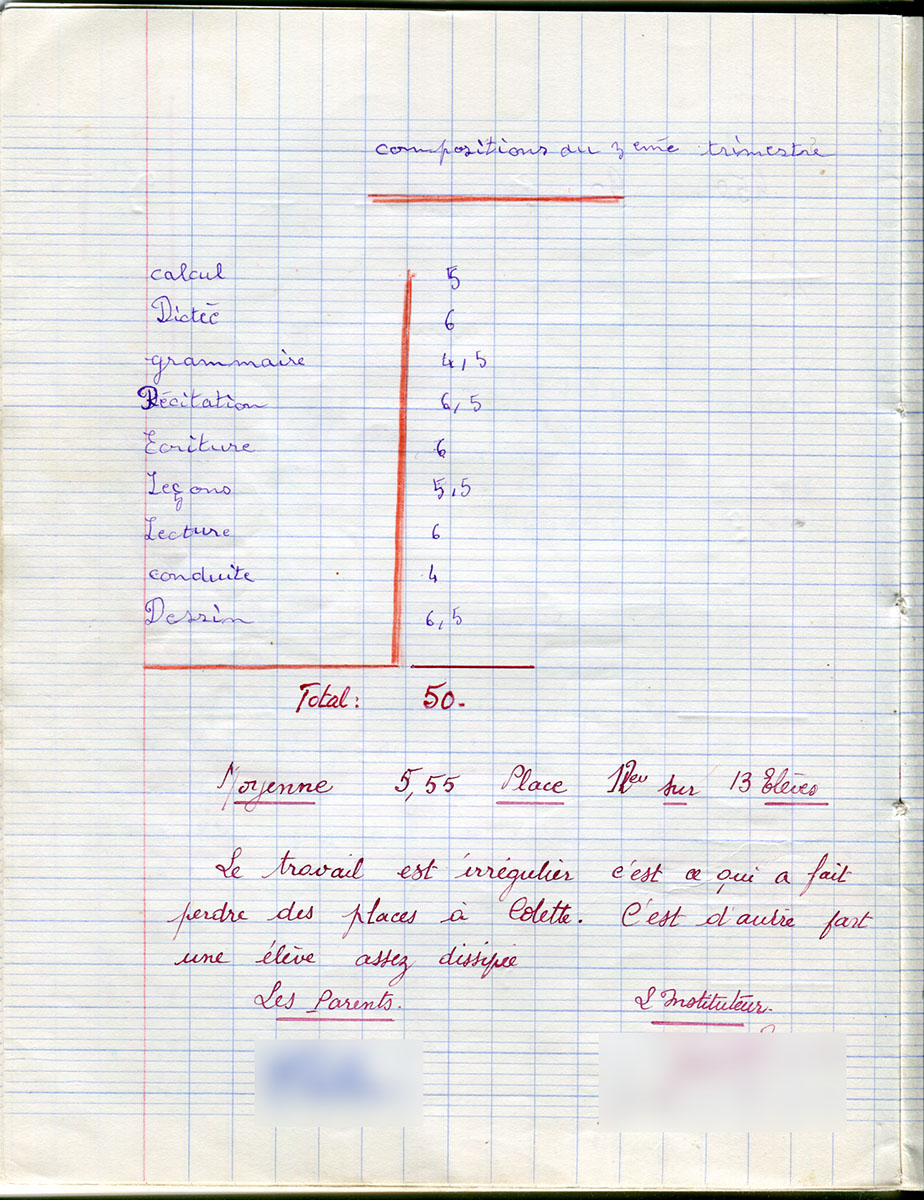 compositions du 3eme trimestre
calcul 5
Dictée 6
grammaire 4,5
Récitation 6,5
Ecriture 6
Leçons 5,5
Lecture 6
conduite 4
Dessin 6,5
Total: 50.
Moyenne 5,55 Place sur 13 Elèves
Le travail est irrégulier c'est ce qui a fait
perdre des places à Colette. C'est d'autre part
une élève assez dissipée
Les Parents.
L'Instituteur.